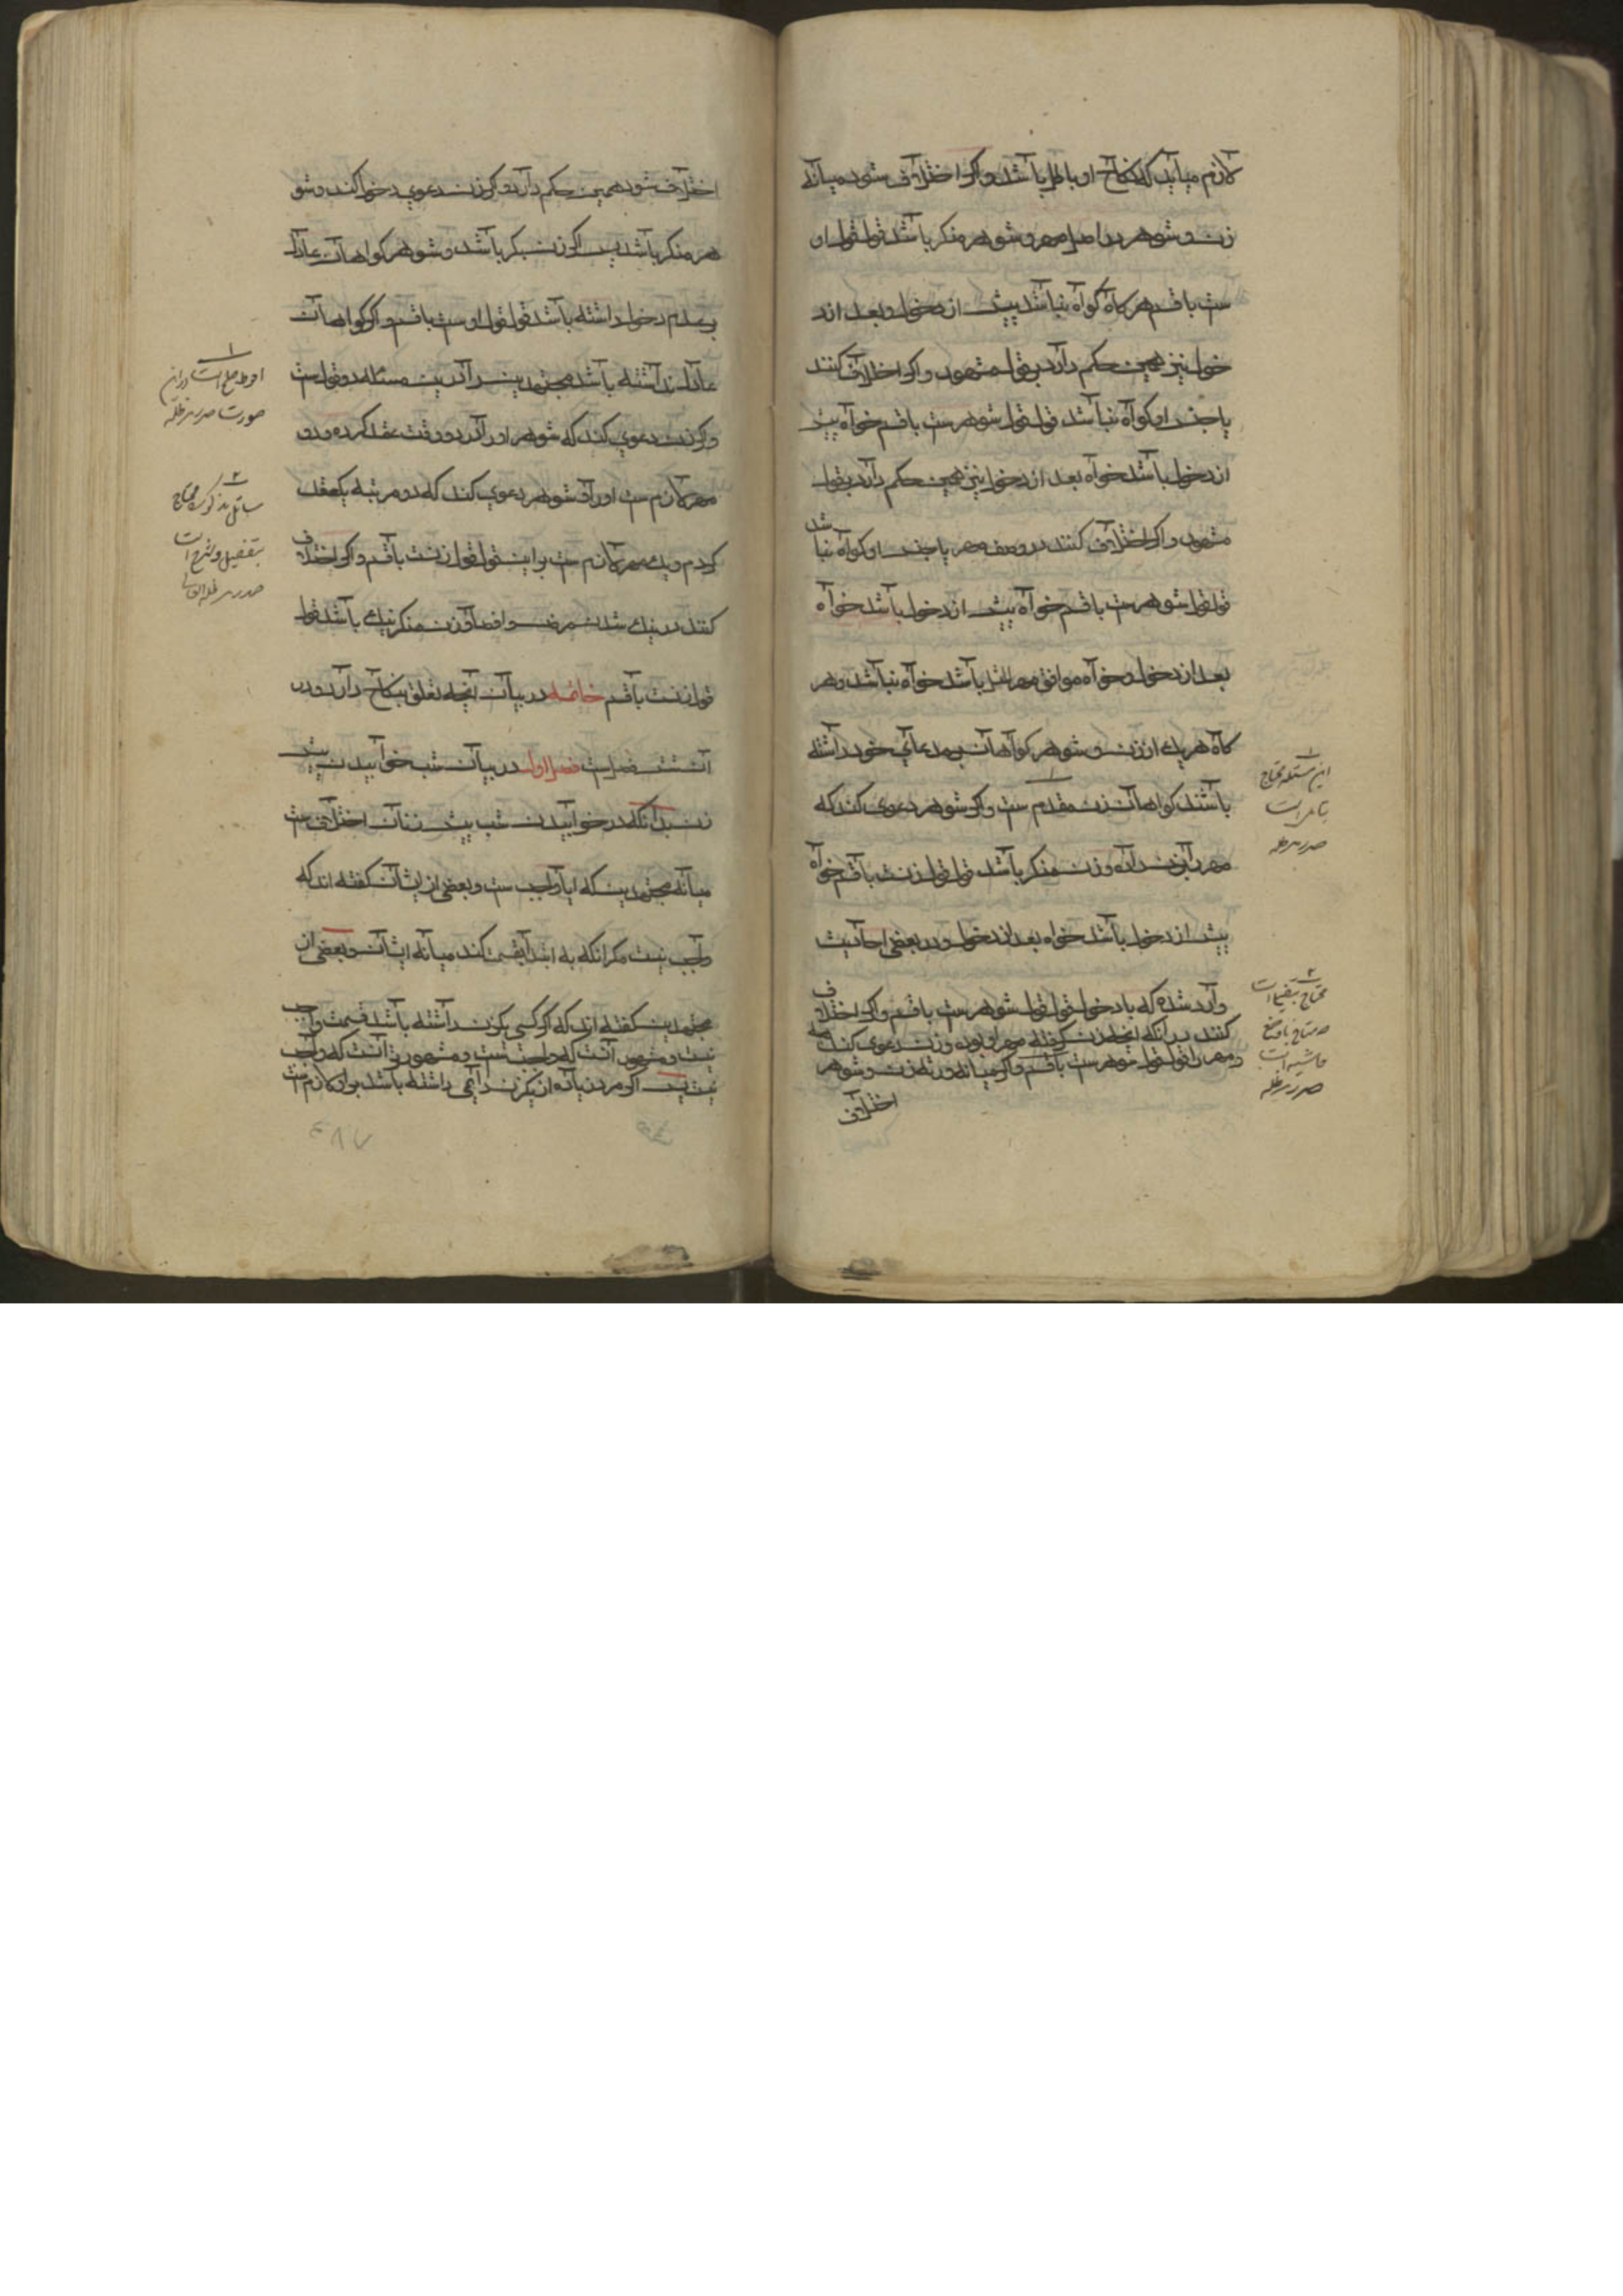 لازم میآید که نکاح او باطل باشد و اکر اختلاف شود میانه
زن و شوهر در اصل مهر و شوهر منکر باشد قول قول او
ست با قسم هر کاه کواه نباشد پیش از دخول و بعد از د
خول نیز همین حکم دارد بر قول مشهور و اکر اختلاف کنند
یا جنس او کواه نباشد قول قول شوهر ست با قسم خواه پیش
از دخول باشد خواه بعد از دخول نیز همین حکم دارد بر قول
مشهور و اکر اختلاف کنند در وصف مهر یا جنس او کواه نباشد
قول قول شوهر ست با قسم خواه پیش از دخول باشد خواه
بعد از دخول و خواه موافق مهر المثل باشد خواه نباشد و هر
کاه هر یک از زن و شوهر کواهان بر مدعای خود داشته
باشند کواهان زن مقدم ست و اکر شوهر دعوی کند که
مهر را بزن داده و زن منکر باشد قول قول زنست با قسم خواه
پیش از دخول باشد خواه بعد از دخول و در بعضی احادیث
وارد شده که با دخول قول قول شوهر ست با قسم و اکر اختلاف
کنند در آنکه آنچه زن کرفته مهر او بوده و زن دعوی کند که
مهر را قول قول شوهر ست با قسم و اکر میانه ورثه زن و شوهر
اختلاف
این مسئله محتاج
بتامل است
صدر مد ظله
محتاج بتفصیل است
حاشیه است
صدر مد ظله
اختلاف شود همین حکم دارد و اکر زن دعوی دخول کند و شو
هر منکر باشد پس اکر زن بکر باشد و شوهر کواهان عادل
بر عدم دخول داشته باشد قول قول اوست با قسم و اکر کواهان
عادل نداشته باشد مجتهدین را درین مسئله دو قول ست
و اکر زن دعوی کند که شوهر او را در دو وقت عقد کرده و دو
مهر لازم ست او را و شوهر دعوی کند که دو مرتبه یک عقد
کردم و یک مهر لازم ست برین قول قول زنست با قسم و اکر اختلاف
کنند در شدن و زن منکر باشد قول
قول زنست با قسم خاتمه در بیان آنچه تعلق بنکاح دارد و در
آن شش فصل ست فصل اول در بیان شب خوابیدن پیش
زن بدانکه در خوابیدن شب پیش زنان اختلاف ست
میانه مجتهدین که آیا واجب ست و بعضی از ایشان کفته اند که
واجب نیست مکر آنکه به ابتدا قسمت کند میانه ایشان و بعضی از
مجتهدین کفته اند که اکر کسی یک زن داشته باشد قسمت واجب
نیست و مشهور آنست که واجب ست و مشهورتر آنست که واجب
نیست پس اکر مرد زیاده از یک زن دایمی داشته باشد برو لازم ست
احوط صلح است در آن
صورت صدر مد ظله
مسائل مذکوره محتاج
بتفصیل و شرح است
صدر مد ظله العالی